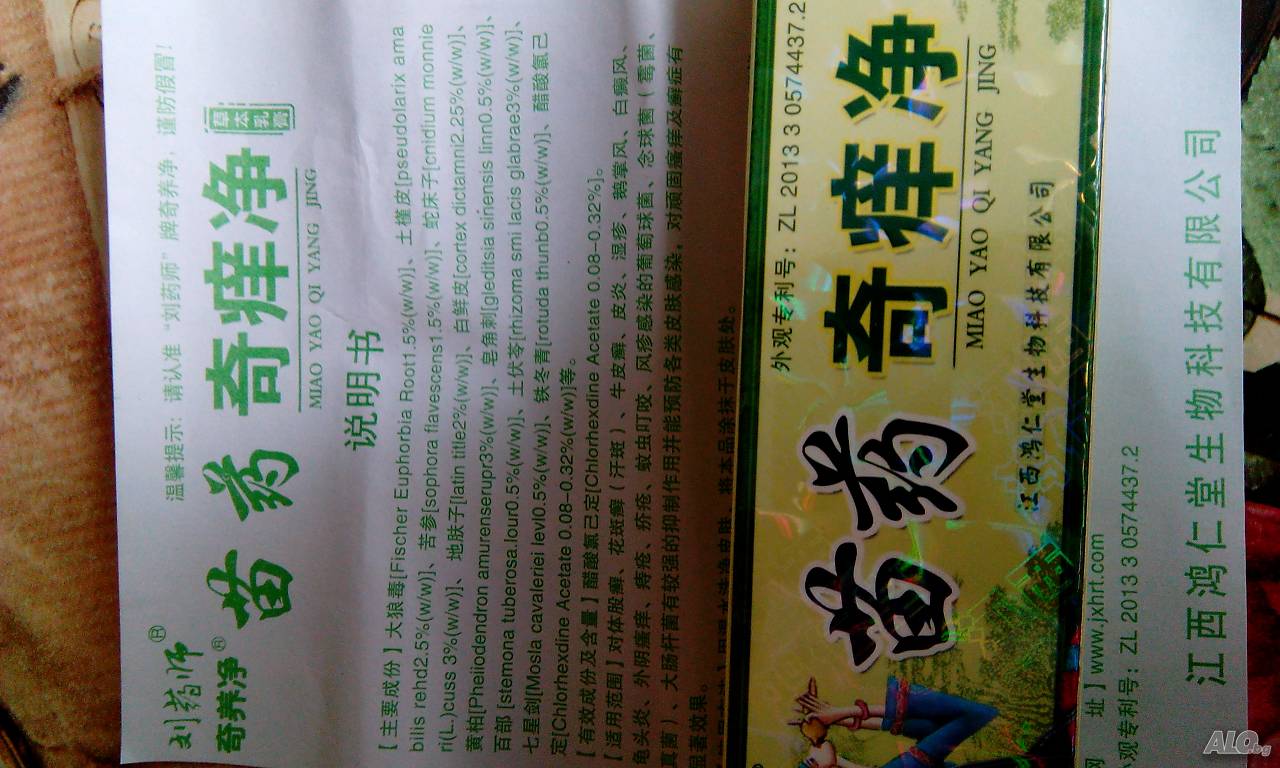 温馨提示：请认准“刘药师”牌奇养净，谨防假冒！
刘药师®
奇养净®
苗药 奇痒净
草本乳膏
MIAO YAO QI YANG JING
说明书
【主要成份】大狼毒[Fischer Euphorbia Root1.5%(w/w)]、土槿皮[pseudolarix ama
bilis rehd2.5%(w/w)]、苦参[sophora flavescens1.5%(w/w)]、蛇床子[cnidium monnie
ri(L.)cuss 3%(w/w)]、地肤子[latin title2%(w/w)]、白鲜皮[cortex dictamni2.25%(w/w)]、
黄柏[Pheiiodendron amurenserupr3%(w/w)]、皂角刺[gleditsia sinensis linn0.5%(w/w)]、
百部[stemona tuberosa.lour0.5%(w/w)]、土伏苓[rhizoma srmi lacis glabrae3%(w/w)]、
七星剑[Mosla cavaleriei levl0.5%(w/w)]、铁冬青[rotuda thunb0.5%(w/w)]、醋酸氯己
定[Chlorhexdine Acetate 0.08–0.32%(w/w)]等。
【有效成份及含量】醋酸氯己定[Chlorhexdine Acetate 0.08–0.32%]。
【适用范围】对体股癣、花斑癣（汗斑）、牛皮癣、皮炎、湿疹、鹅掌风、白癜风、
龟头炎、外阴瘙痒、痔疮、疥疮、蚊虫叮咬、风疹感染的葡萄球菌、念球菌（霉菌、
真菌）、大肠杆菌有较强的抑制作用并能预防各类皮肤感染，对顽固瘙痒及癣症有
显著效果。
用温水洗净皮肤，将本品涂抹于皮肤处。
外观专利号：ZL 2013 3 0574437.2
苗药 奇痒净
MIAO YAO QI YANG JING
江西鸿仁堂生物科技有限公司
网 址】www.jxhrt.com
外观专利号：ZL 2013 3 0574437.2
江西鸿仁堂生物科技有限公司
ALO.bg